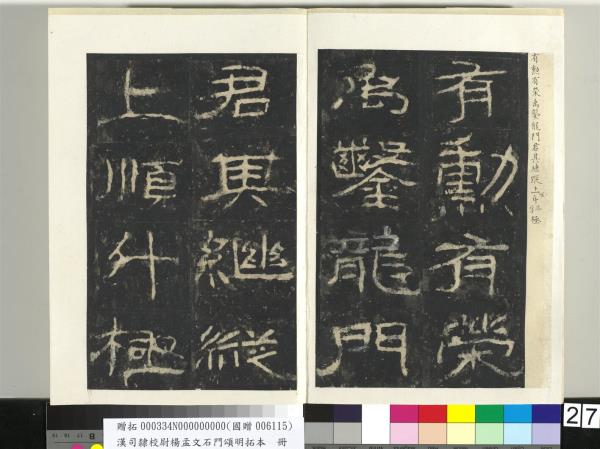 有勳有榮禹鑿龍門君其繼蹤上
有勳有榮
禹鑿龍門
君其繼縱
上順斗極
贈拓 000334N000000000(國贈 006115)
漢司隸校尉楊孟文石門頌明拓本 冊
27
B